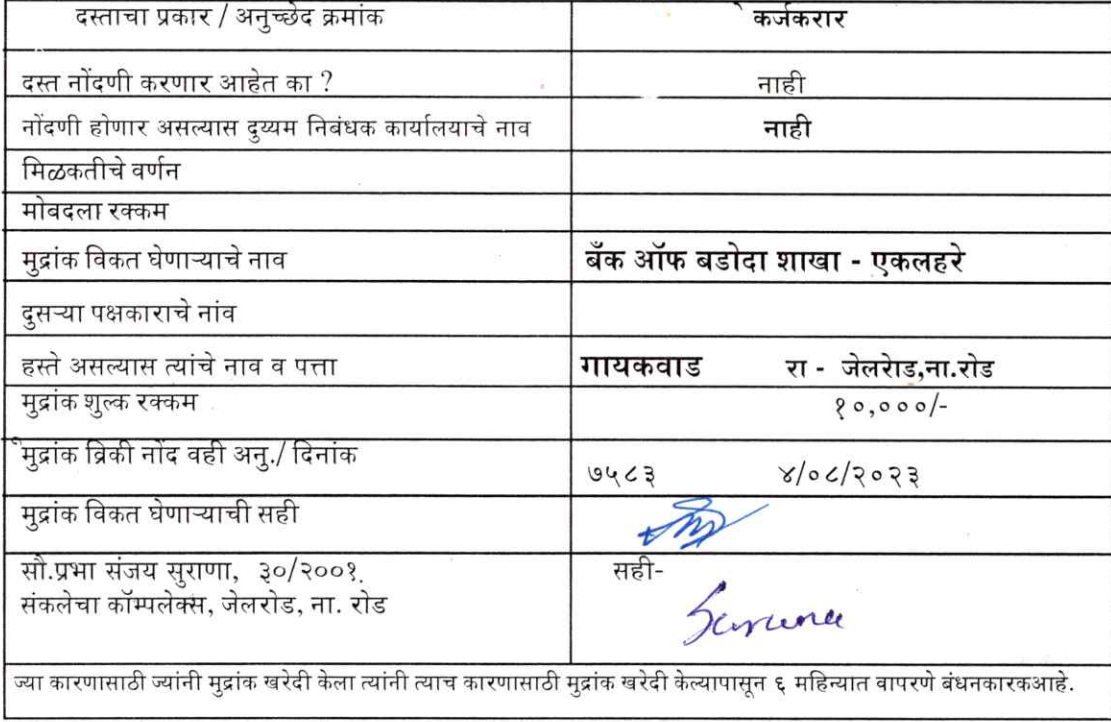 दस्ताचा प्रकार / अनुच्छेद क्रमांक कर्जकरार
दस्त नोंदणी करणार आहेत का ? नाही
नोंदणी होणार असल्यास दुय्यम निबंधक कार्यालयाचे नाव नाही
मिळकतीचे वर्णन
मोबदला रक्कम
मुद्रांक विकत घेणाऱ्याचे नाव बँक ऑफ बडोदा शाखा - एकलहरे
दुसऱ्या पक्षकाराचे नांव
हस्ते असल्यास त्यांचे नाव व पत्ता गायकवाड रा - जेलरोड,ना.रोड
मुद्रांक शुल्क रक्कम १०,०००/-
मुद्रांक विक्री नोंद वही अनु./ दिनांक ७५८३ ४/०८/२०२३
मुद्रांक विकत घेणाऱ्याची सही
सौ.प्रभा संजय सुराणा, ३०/२००१. सही-
संकलेचा कॉम्पलेक्स, जेलरोड, ना. रोड Surana
ज्या कारणासाठी ज्यांनी मुद्रांक खरेदी केला त्यांनी त्याच कारणासाठी मुद्रांक खरेदी केल्यापासून ६ महिन्यात वापरणे बंधनकारकआहे.